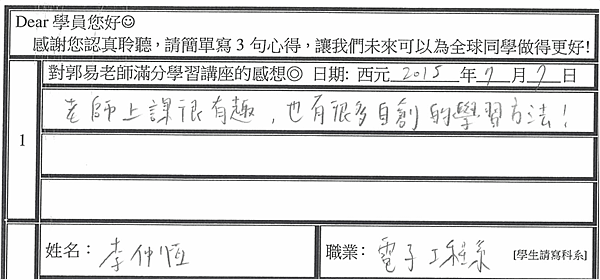 Dear 學員您好☺
感謝您認真聆聽，請簡單寫 3 句心得，讓我們未來可以為全球同學做得更好!
對郭易老師滿分學習講座的感想◎ 日期: 西元 2015 年 7 月 7 日
1
老師上課很有趣，也有很多自創的學習方法！
姓名： 李仲恆 職業： 電子工程系 [學生請寫科系]